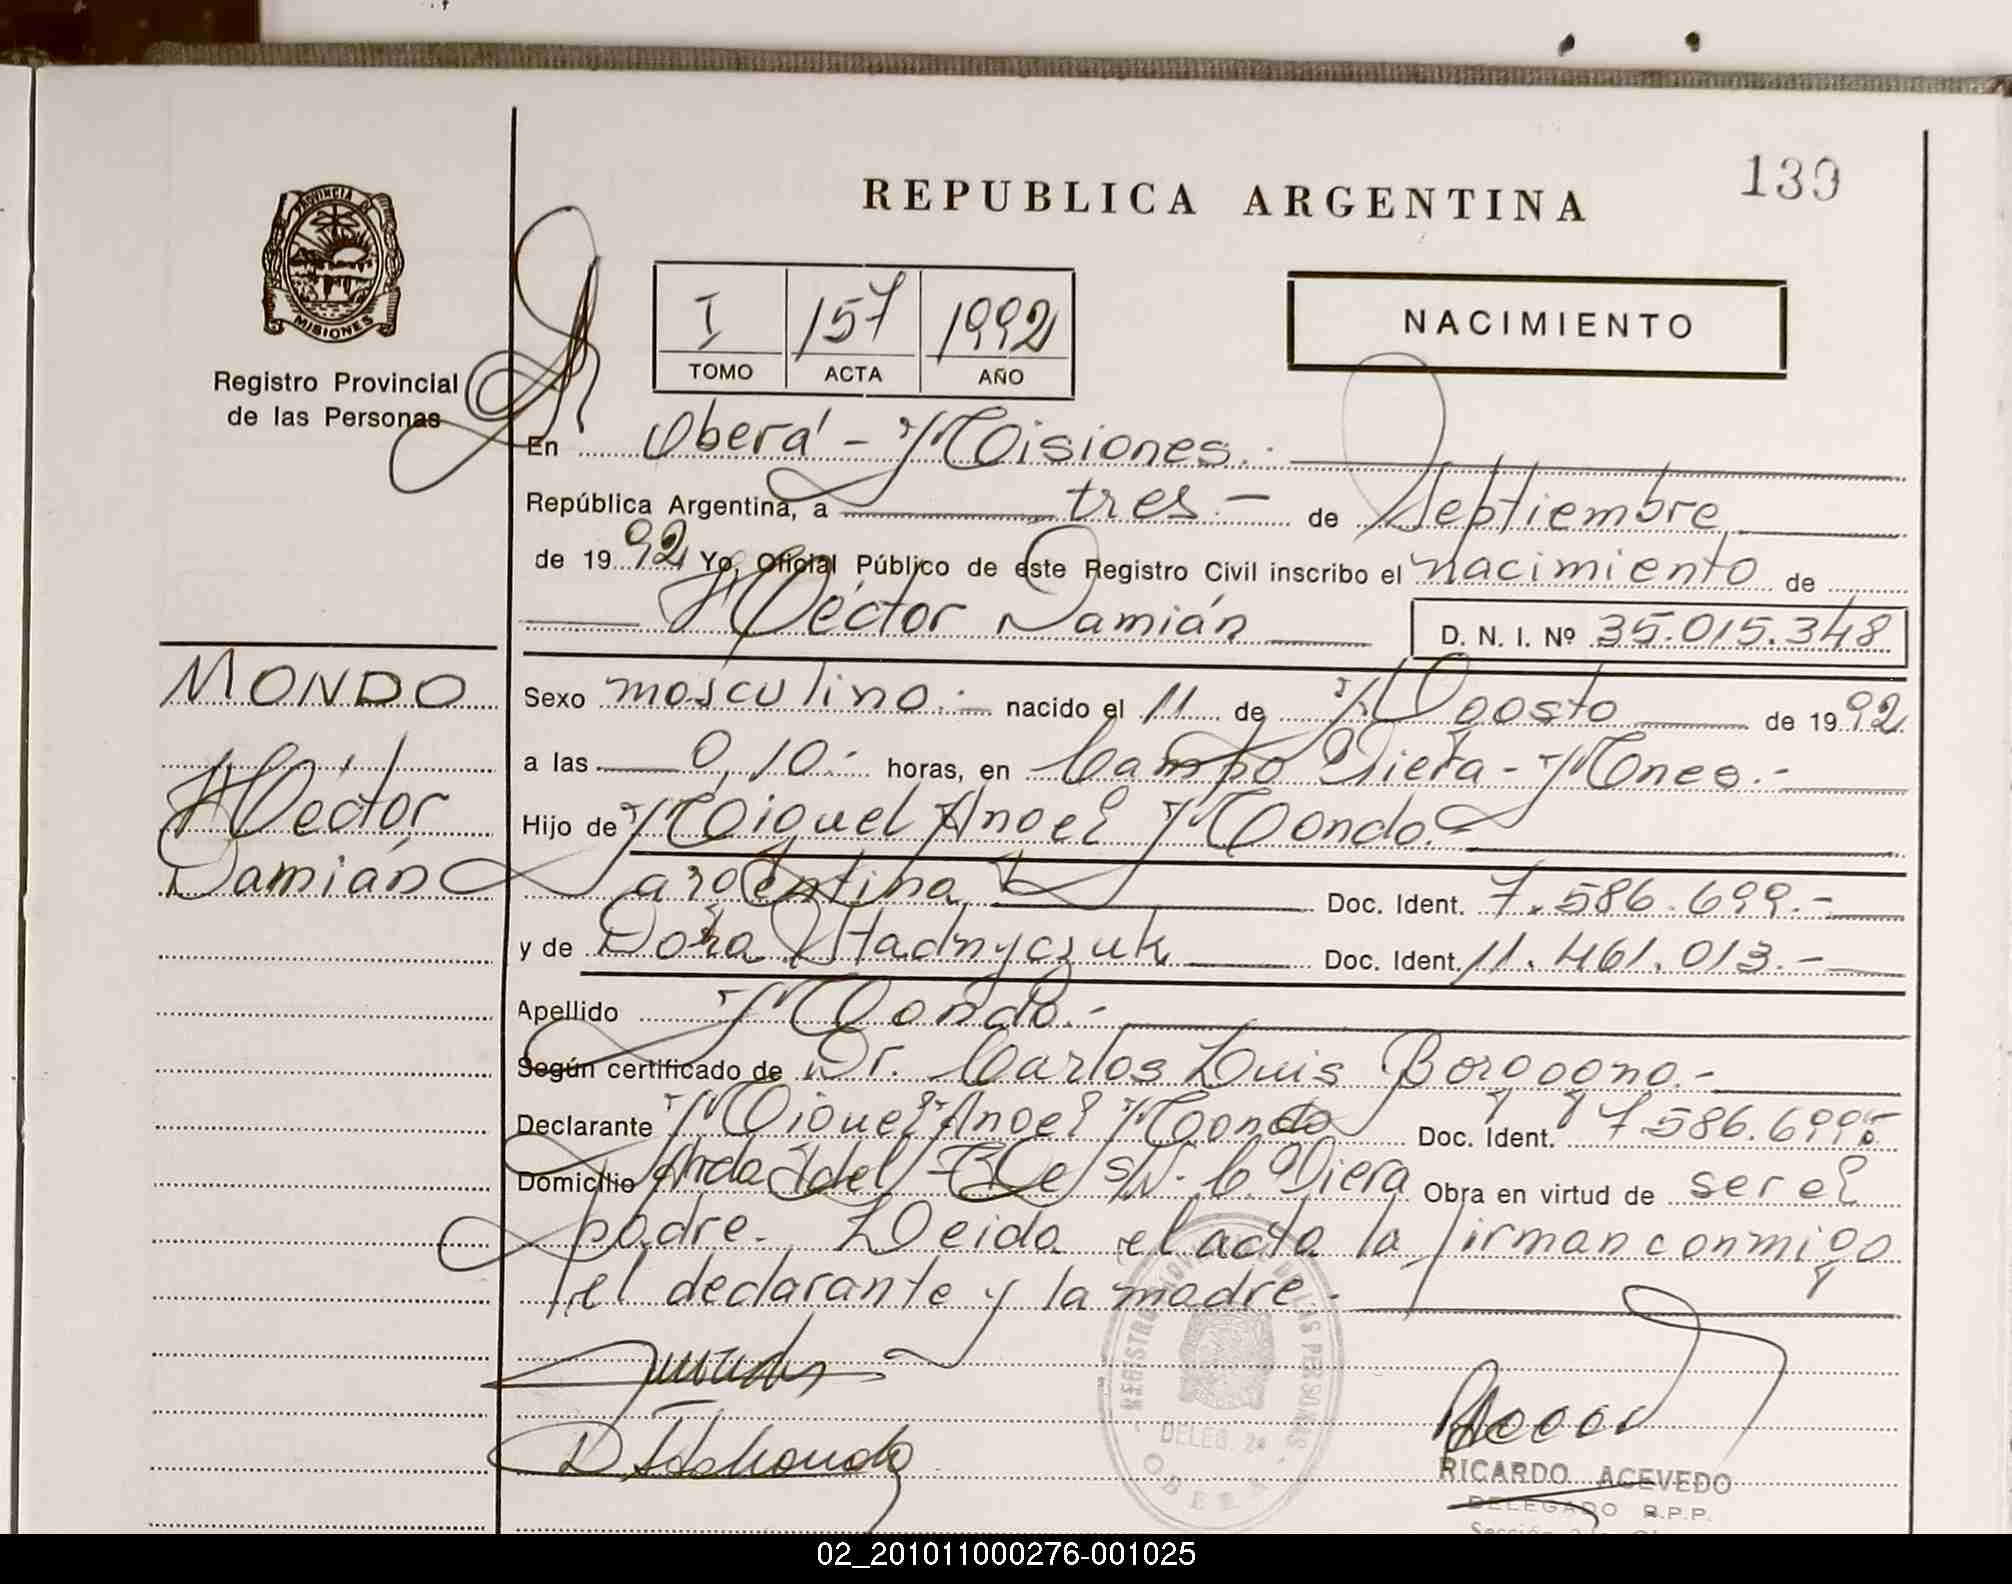 REPUBLICA ARGENTINA
139
PROVINCIA DE
MISIONES
Registro Provincial
de las Personas
I 157 1992
TOMO ACTA AÑO
NACIMIENTO
En Oberá - Misiones.-
República Argentina, a tres - de Septiembre
de 1992 Yo, Oficial Público de este Registro Civil inscribo el nacimiento de
Héctor Damián D. N. I. Nº 35.015.348
MONDO
Héctor
Damián
Sexo masculino.- nacido el 11 de Agosto de 1992
a las 0,10.- horas, en Campo Viera - Mnes.-
Hijo de Miguel Angel Mondo.-
argentina Doc. Ident. 7.586.699.-
y de Dora Stadnyczuk Doc. Ident. 11.461.013.-
Apellido Mondo.-
Según certificado de Dr. Carlos Luis Borgogno.-
Declarante Miguel Angel Mondo Doc. Ident. 7.586.699.-
Domicilio S/N. C. Viera Obra en virtud de ser el
padre. Leida el acta la firman conmigo
el declarante y la madre.-
REGISTRO PROVINCIAL DE LAS PERSONAS
DELEG. 2ª
OBERA
RICARDO ACEVEDO
DELEGADO R.P.P.
02_201011000276-001025